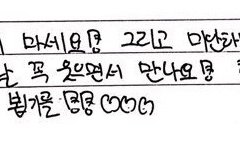 마세요 그리고 미안하
꼭 웃으면서 만나요
뵙기를 ♡♡♡